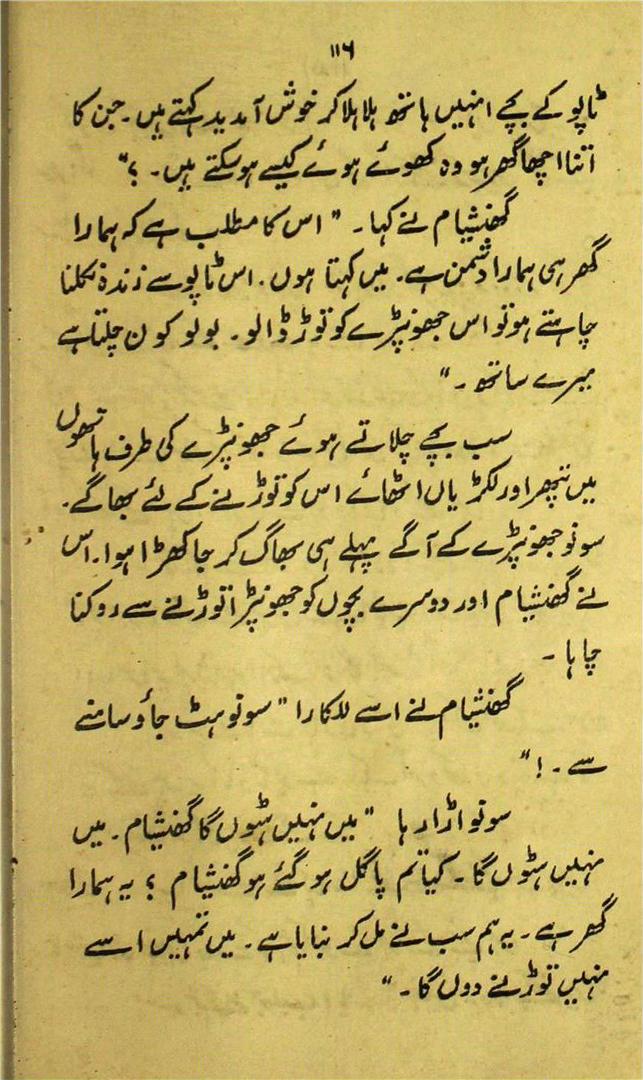 ۱۱۶
ٹاپو کے بچے انہیں ہاتھ ہلا ہلا کر خوش آمدید کہتے ہیں۔ جن کا
اتنا اچھا گھر ہو وہ کھوئے ہوئے کیسے ہو سکتے ہیں۔ ؟"
گھنشیام نے کہا۔ "اس کا مطلب ہے کہ ہمارا
گھر ہی ہمارا دشمن ہے۔ میں کہتا ہوں۔ اس ٹاپو سے زندہ نکلنا
چاہتے ہو تو اس جھونپڑے کو توڑ ڈالو۔ بولو کون چلتا ہے
میرے ساتھ۔"
سب بچے چلاتے ہوئے جھونپڑے کی طرف ہاتھوں
میں پتھر اور لکڑیاں اٹھائے اس کو توڑنے کے لئے بھاگے۔
سونو جھونپڑے کے آگے پہلے ہی بھاگ کر جا کھڑا ہوا۔ اس
نے گھنشیام اور دوسرے بچوں کو جھونپڑا توڑنے سے روکنا
چاہا۔
گھنشیام نے اسے للکارا "سونو ہٹ جاؤ سامنے
سے۔ !"
سونو اڑا رہا "میں نہیں ہٹوں گا گھنشیام۔ میں
نہیں ہٹوں گا۔ کیا تم پاگل ہو گئے ہو گھنشیام ؟ یہ ہمارا
گھر ہے۔ یہ ہم سب نے مل کر بنایا ہے۔ میں تمہیں اسے
نہیں توڑنے دوں گا۔"